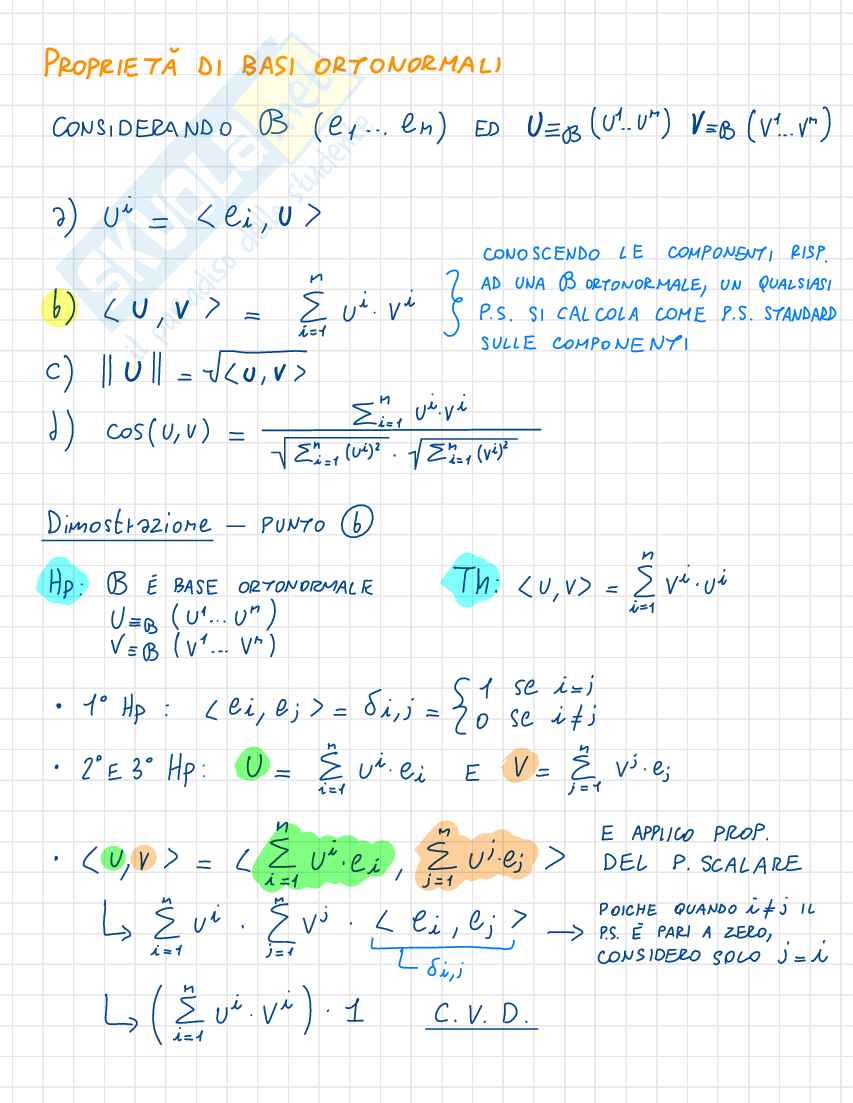 PROPRIETĂ DI BASI ORTONORMALI
CONSIDERANDO B (e₁... eₙ) ED U≡_B (U¹.. Uⁿ) V≡_B (V¹... Vⁿ)
a) uⁱ = <eᵢ, u>
CONOSCENDO LE COMPONENTI RISP.
AD UNA B ORTONORMALE, UN QUALSIASI
P.S. SI CALCOLA COME P.S. STANDARD
SULLE COMPONENTI
b) <u, v> = Σ_{i=1}^{n} uⁱ · vⁱ
c) ||U|| = √<u, v>
d) cos(u,v) = Σ_{i=1}^{n} uⁱ·vⁱ / √Σ_{i=1}^{n} (uⁱ)² · √Σ_{i=1}^{n} (vⁱ)²
Dimostrazione — PUNTO b
Hp: B É BASE ORTONORMALE
U≡_B (U¹... Uⁿ)
V≡_B (V¹... Vⁿ)
Th: <u,v> = Σ_{i=1}^{n} vⁱ·uⁱ
• 1° Hp : <eᵢ, eⱼ> = δᵢ,ⱼ = { 1 se i=j
0 se i≠j
• 2° E 3° Hp: U = Σ_{i=1}^{n} uⁱ·eᵢ E V = Σ_{j=1}^{n} vʲ·eⱼ
• <u,v> = <Σ_{i=1}^{n} uⁱ·eᵢ, Σ_{j=1}^{n} uʲ·eⱼ> E APPLICO PROP.
DEL P. SCALARE
↳ Σ_{i=1}^{n} uⁱ · Σ_{j=1}^{n} vʲ · <eᵢ, eⱼ> → POICHE QUANDO i≠j IL
P.S. É PARI A ZERO,
CONSIDERO SOLO j=i
δᵢ,ⱼ
↳ (Σ_{i=1}^{n} uⁱ·vⁱ) · 1 C.V.D.
SKUOLA.net
il paradiso dello studente